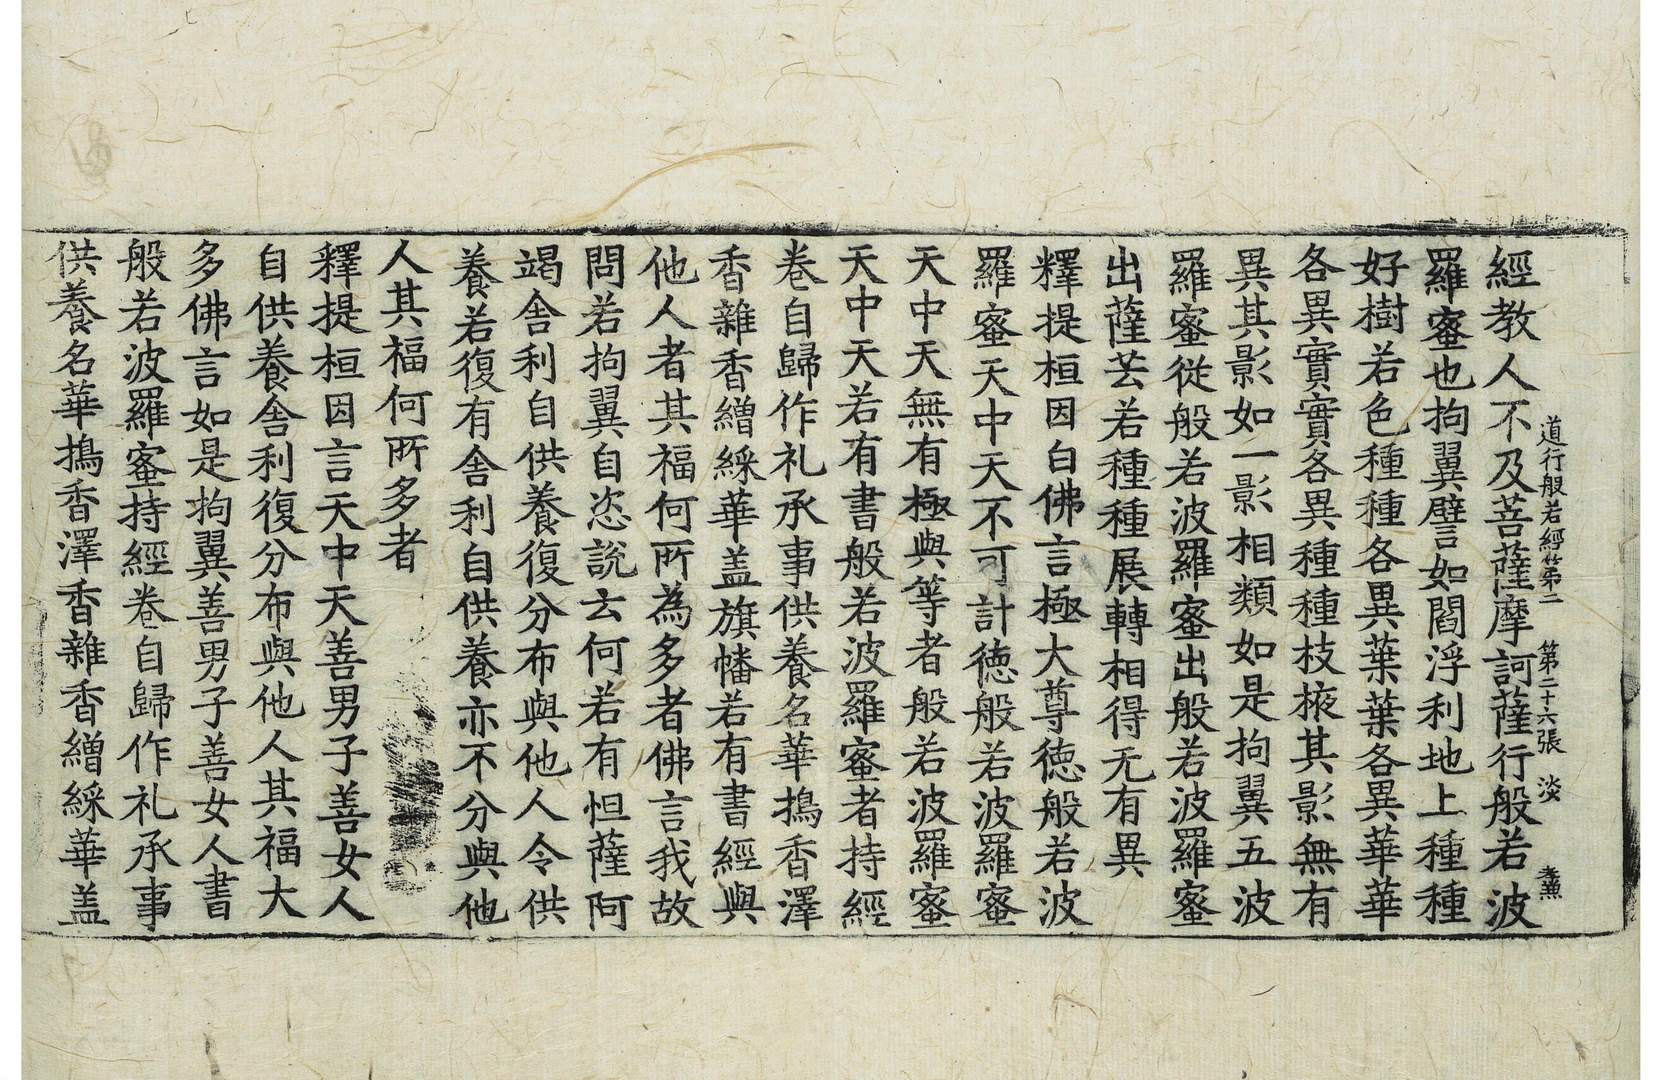 道行般若經第二　第二十六張　淡　孝兼
經教人不及菩薩摩訶薩行般若波
羅蜜也拘翼譬如閻浮利地上種種
好樹若色種種各異葉葉各異華華
各異實實各異種種枝掖其影無有
異其影如一影相類如是拘翼五波
羅蜜從般若波羅蜜出般若波羅蜜
出薩芸若種種展轉相得无有異
釋提桓因白佛言極大尊德般若波
羅蜜天中天不可計德般若波羅蜜
天中天無有極與等者般若波羅蜜
天中天若有書般若波羅蜜者持經
卷自歸作礼承事供養名華搗香澤
香雜香繒綵華盖旗幡若有書經與
他人者其福何所為多者佛言我故
問若拘翼自恣說云何若有怛薩阿
竭舍利自供養復分布與他人令供
養若復有舍利自供養亦不分與他
人其福何所多者
釋提桓因言天中天善男子善女人
自供養舍利復分布與他人其福大
多佛言如是拘翼善男子善女人書
般若波羅蜜持經卷自歸作礼承事
供養名華搗香澤香雜香繒綵華盖